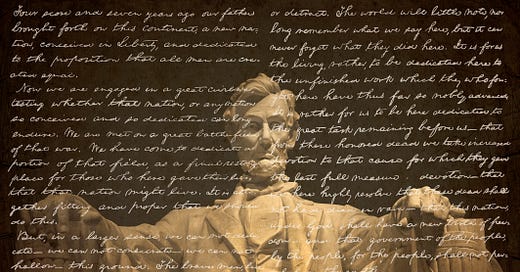 Four score and seven years ago our fathers
brought forth on this continent, a new na-
tion, conceived in Liberty, and dedicated
to the proposition that all men are cre-
ated equal.
Now we are engaged in a great civil war,
testing whether that nation, or any nation
so conceived and so dedicated, can long
endure. We are met on a great battle-field
of that war. We have come to dedicate a
portion of that field, as a final resting
place for those who here gave their lives
that that nation might live. It is alto-
gether fitting and proper that we should
do this.
But, in a larger sense, we can not dedi-
cate— we can not consecrate— we can not
hallow— this ground. The brave men, liv-
or detract. The world will little note, nor
long remember what we say here, but it can
never forget what they did here. It is for us
the living, rather, to be dedicated here to
the unfinished work which they who fou-
here have thus far so nobly advanced.
rather for us to be here dedicated to
the great task remaining before us— that
these honored dead we take increased
devotion to that cause for which they gave
the last full measure devotion— that
here highly resolve that these dead shall
have died in vain— that this nation
under God, shall have a new birth of free-
dom— and that government of the people,
by the people, for the people, shall not per-